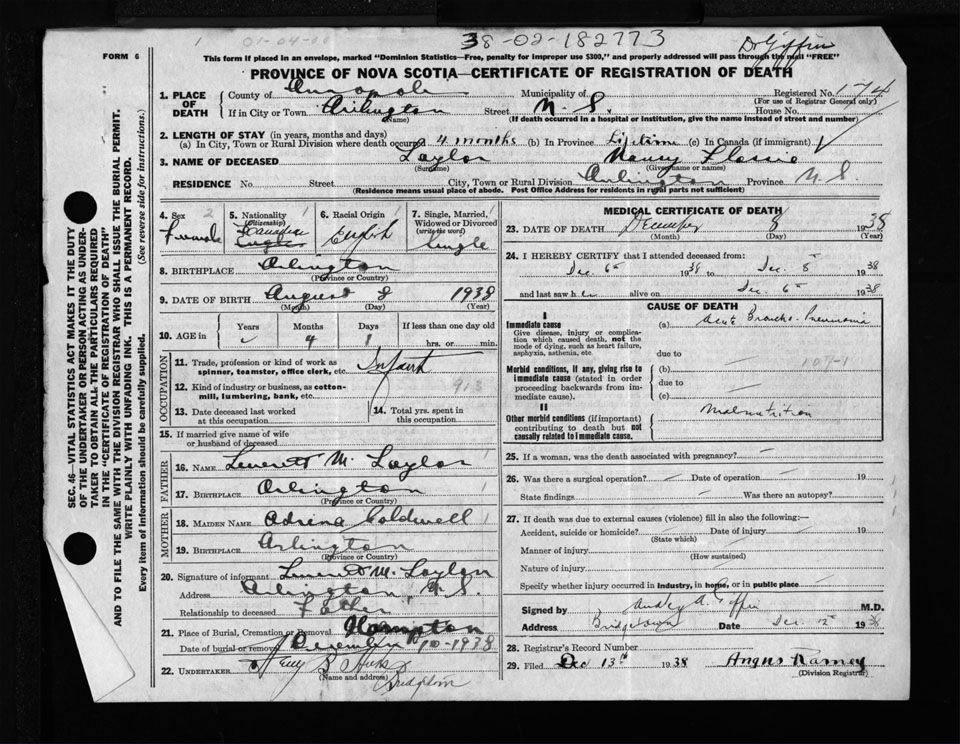 38-02-182773
01-04-00
Dr Giffin
FORM 6
This form if placed in an envelope, marked "Dominion Statistics—Free, penalty for improper use $300," and properly addressed will pass through the mail "FREE"
PROVINCE OF NOVA SCOTIA—CERTIFICATE OF REGISTRATION OF DEATH
1. PLACE OF DEATH County of Annapolis Municipality of Registered No. 174
(For use of Registrar General only)
If in City or Town Arlington Street N. S. House No.
(Name) (If death occurred in a hospital or institution, give the name instead of street and number)
2. LENGTH OF STAY (in years, months and days)
(a) In City, Town or Rural Division where death occurred 4 months (b) In Province Lifetime (c) In Canada (if immigrant)
3. NAME OF DECEASED Taylor Nancy Flossie
(Surname) (Given name or names)
RESIDENCE No. Street City, Town or Rural Division Arlington Province N. S.
(Residence means usual place of abode. Post Office Address for residents in rural parts not sufficient)
4. Sex 2 Female
5. Nationality 1 (Citizenship) Canadian English
6. Racial Origin 1 English
7. Single, Married, Widowed or Divorced (write the word) Single
8. BIRTHPLACE Arlington
(Province or Country)
9. DATE OF BIRTH August 8 1938
(Month) (Day) (Year)
10. AGE in Years Months Days If less than one day
4 1 hrs. or min.
OCCUPATION
11. Trade, profession or kind of work as spinner, teamster, office clerk, etc. Infant
12. Kind of industry or business, as cotton-mill, lumbering, bank, etc. 913
13. Date deceased last worked at this occupation
14. Total yrs. spent in this occupation
15. If married give name of wife or husband of deceased
FATHER
16. NAME M. Taylor
17. BIRTHPLACE Arlington
(Province or Country)
MOTHER
18. MAIDEN NAME Adrina Coldwell
19. BIRTHPLACE Arlington
(Province or Country)
20. Signature of informant M. Taylor
Address Arlington, N. S.
Relationship to deceased Father
21. Place of Burial, Cremation or Removal Hampton
Date of burial or removal December 10-1938
22. UNDERTAKER S Hicks
(Name and address) Bridgetown
MEDICAL CERTIFICATE OF DEATH
23. DATE OF DEATH December 8 1938
(Month) (Day) (Year)
24. I HEREBY CERTIFY that I attended deceased from:
Dec 6th 1938 to Dec. 8th 1938
and last saw her alive on Dec 6th 1938
CAUSE OF DEATH
I
Immediate cause (a) Acute Broncho-Pneumonia
Give disease, injury or complication which caused death, not the mode of dying, such as heart failure, asphyxia, asthenia, etc.
due to
107-1
Morbid conditions, if any, giving rise to immediate cause (stated in order proceeding backwards from immediate cause).
(b)
due to
(c)
II
Other morbid conditions (if important) contributing to death but not causally related to immediate cause. Malnutrition
25. If a woman, was the death associated with pregnancy?
26. Was there a surgical operation? Date of operation 19
State findings Was there an autopsy?
27. If death was due to external causes (violence) fill in also the following:—
Accident, suicide or homicide? Date of injury 19
(State which)
Manner of injury
(How sustained)
Nature of injury
Specify whether injury occurred in industry, in home, or in public place
Signed by A. Giffin M.D.
Address Bridgetown Date Dec. 12th 1938
28. Registrar's Record Number
29. Filed Dec 13th 1938 Angus Ramey
(Division Registrar)
SEC. 46—VITAL STATISTICS ACT MAKES IT THE DUTY
OF THE UNDERTAKER OR PERSON ACTING AS UNDER-
TAKER TO OBTAIN ALL THE PARTICULARS REQUIRED
IN THE "CERTIFICATE OF REGISTRATION OF DEATH"
AND TO FILE THE SAME WITH THE DIVISION REGISTRAR WHO SHALL ISSUE THE BURIAL PERMIT.
WRITE PLAINLY WITH UNFADING INK. THIS IS A PERMANENT RECORD.
Every item of information should be carefully supplied. (See reverse side for instructions.)